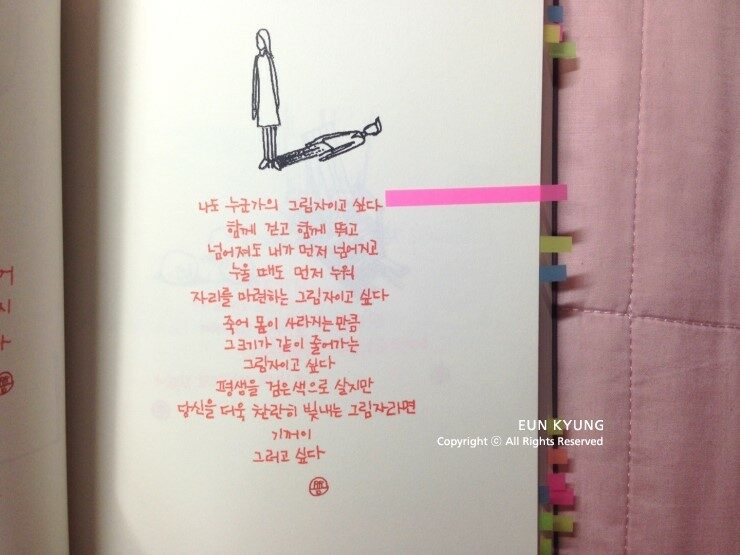 나도 누군가의 그림자이고 싶다
함께 걷고 함께 뛰고
넘어져도 내가 먼저 넘어지고
누울 때도 먼저 누워
자리를 마련하는 그림자이고 싶다
죽어 몸이 사라지는 만큼
그 크기가 같이 줄어가는
그림자이고 싶다
평생을 검은색으로 살지만
당신을 더욱 찬란히 빛내는 그림자라면
기꺼이
그러고 싶다
EUN KYUNG
Copyright ⓒ All Rights Reserved